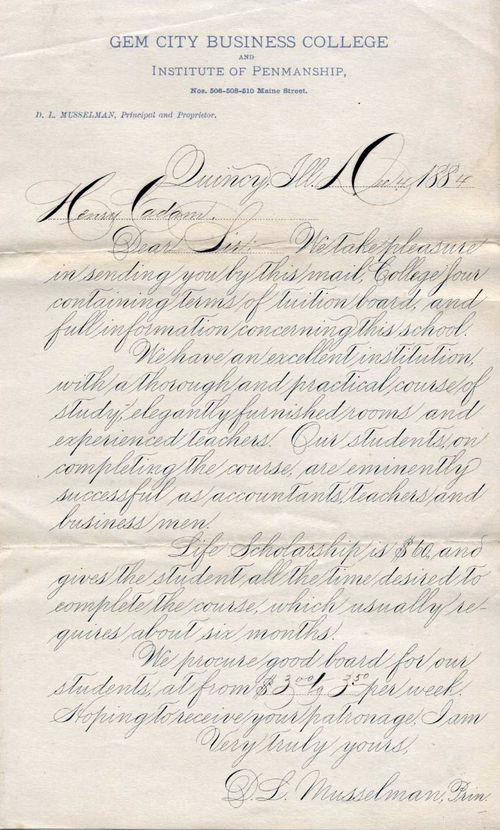 GEM CITY BUSINESS COLLEGE
AND
INSTITUTE OF PENMANSHIP,
Nos. 506-508-510 Maine Street.
D. L. MUSSELMAN, Principal and Proprietor.
Quincy, Ill. Dec 4 1884
Henry Cadam.
Dear Sir:— We take pleasure
in sending you by this mail, College Jour
containing terms of tuition board, and
full information concerning this school.
We have an excellent institution,
with a thorough and practical course of
study, elegantly furnished rooms and
experienced teachers. Our students, on
completing the course, are eminently
successful as accountants, teachers, and
business men.
Life Scholarship is $60, and
gives the student all the time desired to
complete the course, which usually re-
quires about six months.
We procure good board for our
students, at from $3.00 to 3.50 per week.
Hoping to receive your patronage, I am
Very truly yours,
D. L. Musselman, Prin.